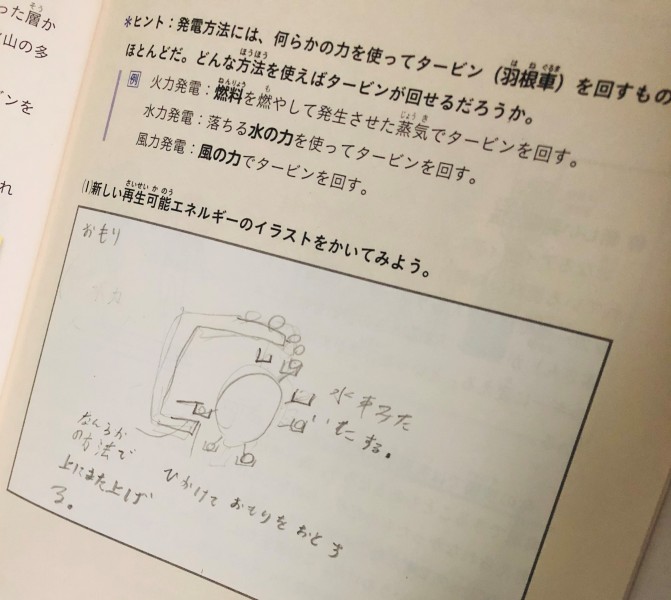 った層か
山の多
ンを
れ
*ヒント：発電方法には、何らかの力を使ってタービン（羽根車）を回すもの
ほとんどだ。どんな方法を使えばタービンが回せるだろうか。
例 火力発電：燃料を燃やして発生させた蒸気でタービンを回す。
水力発電：落ちる水の力を使ってタービンを回す。
風力発電：風の力でタービンを回す。
(1)新しい再生可能エネルギーのイラストをかいてみよう。
おもり
水力
なんらか
の方法で
上にまた上げ
る。
ひかけて おもりを おとす